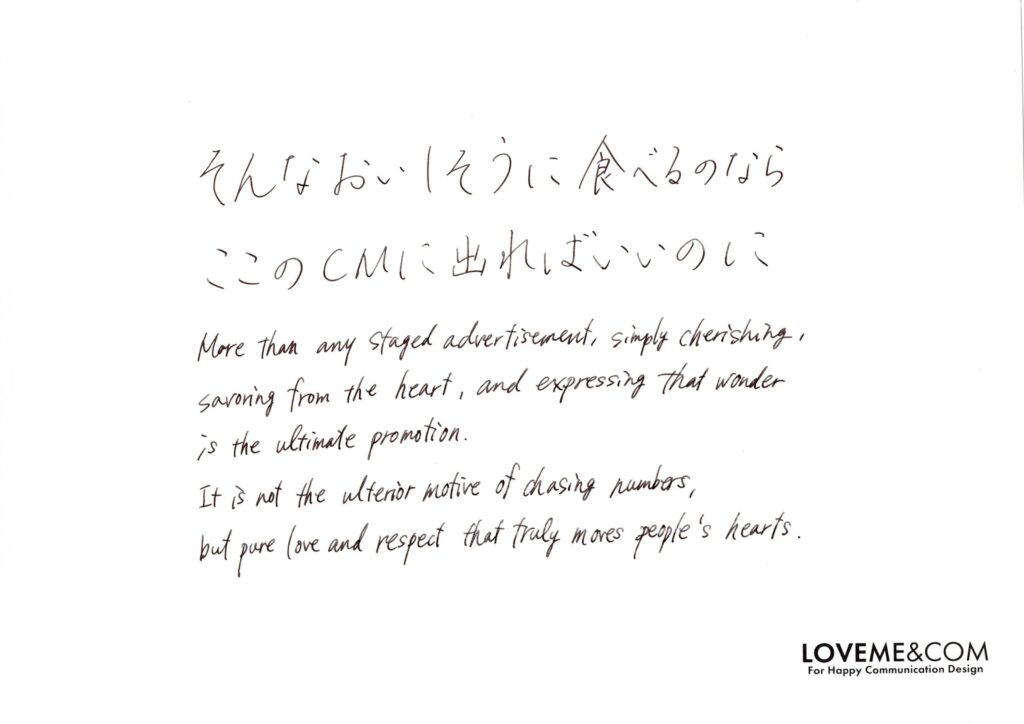 そんなおいしそうに食べるのなら
ここのCMに出ればいいのに
More than any staged advertisement, simply cherishing,
savoring from the heart, and expressing that wonder
is the ultimate promotion.
It is not the ulterior motive of chasing numbers,
but pure love and respect that truly moves people's hearts.
LOVEME&COM
For Happy Communication Design